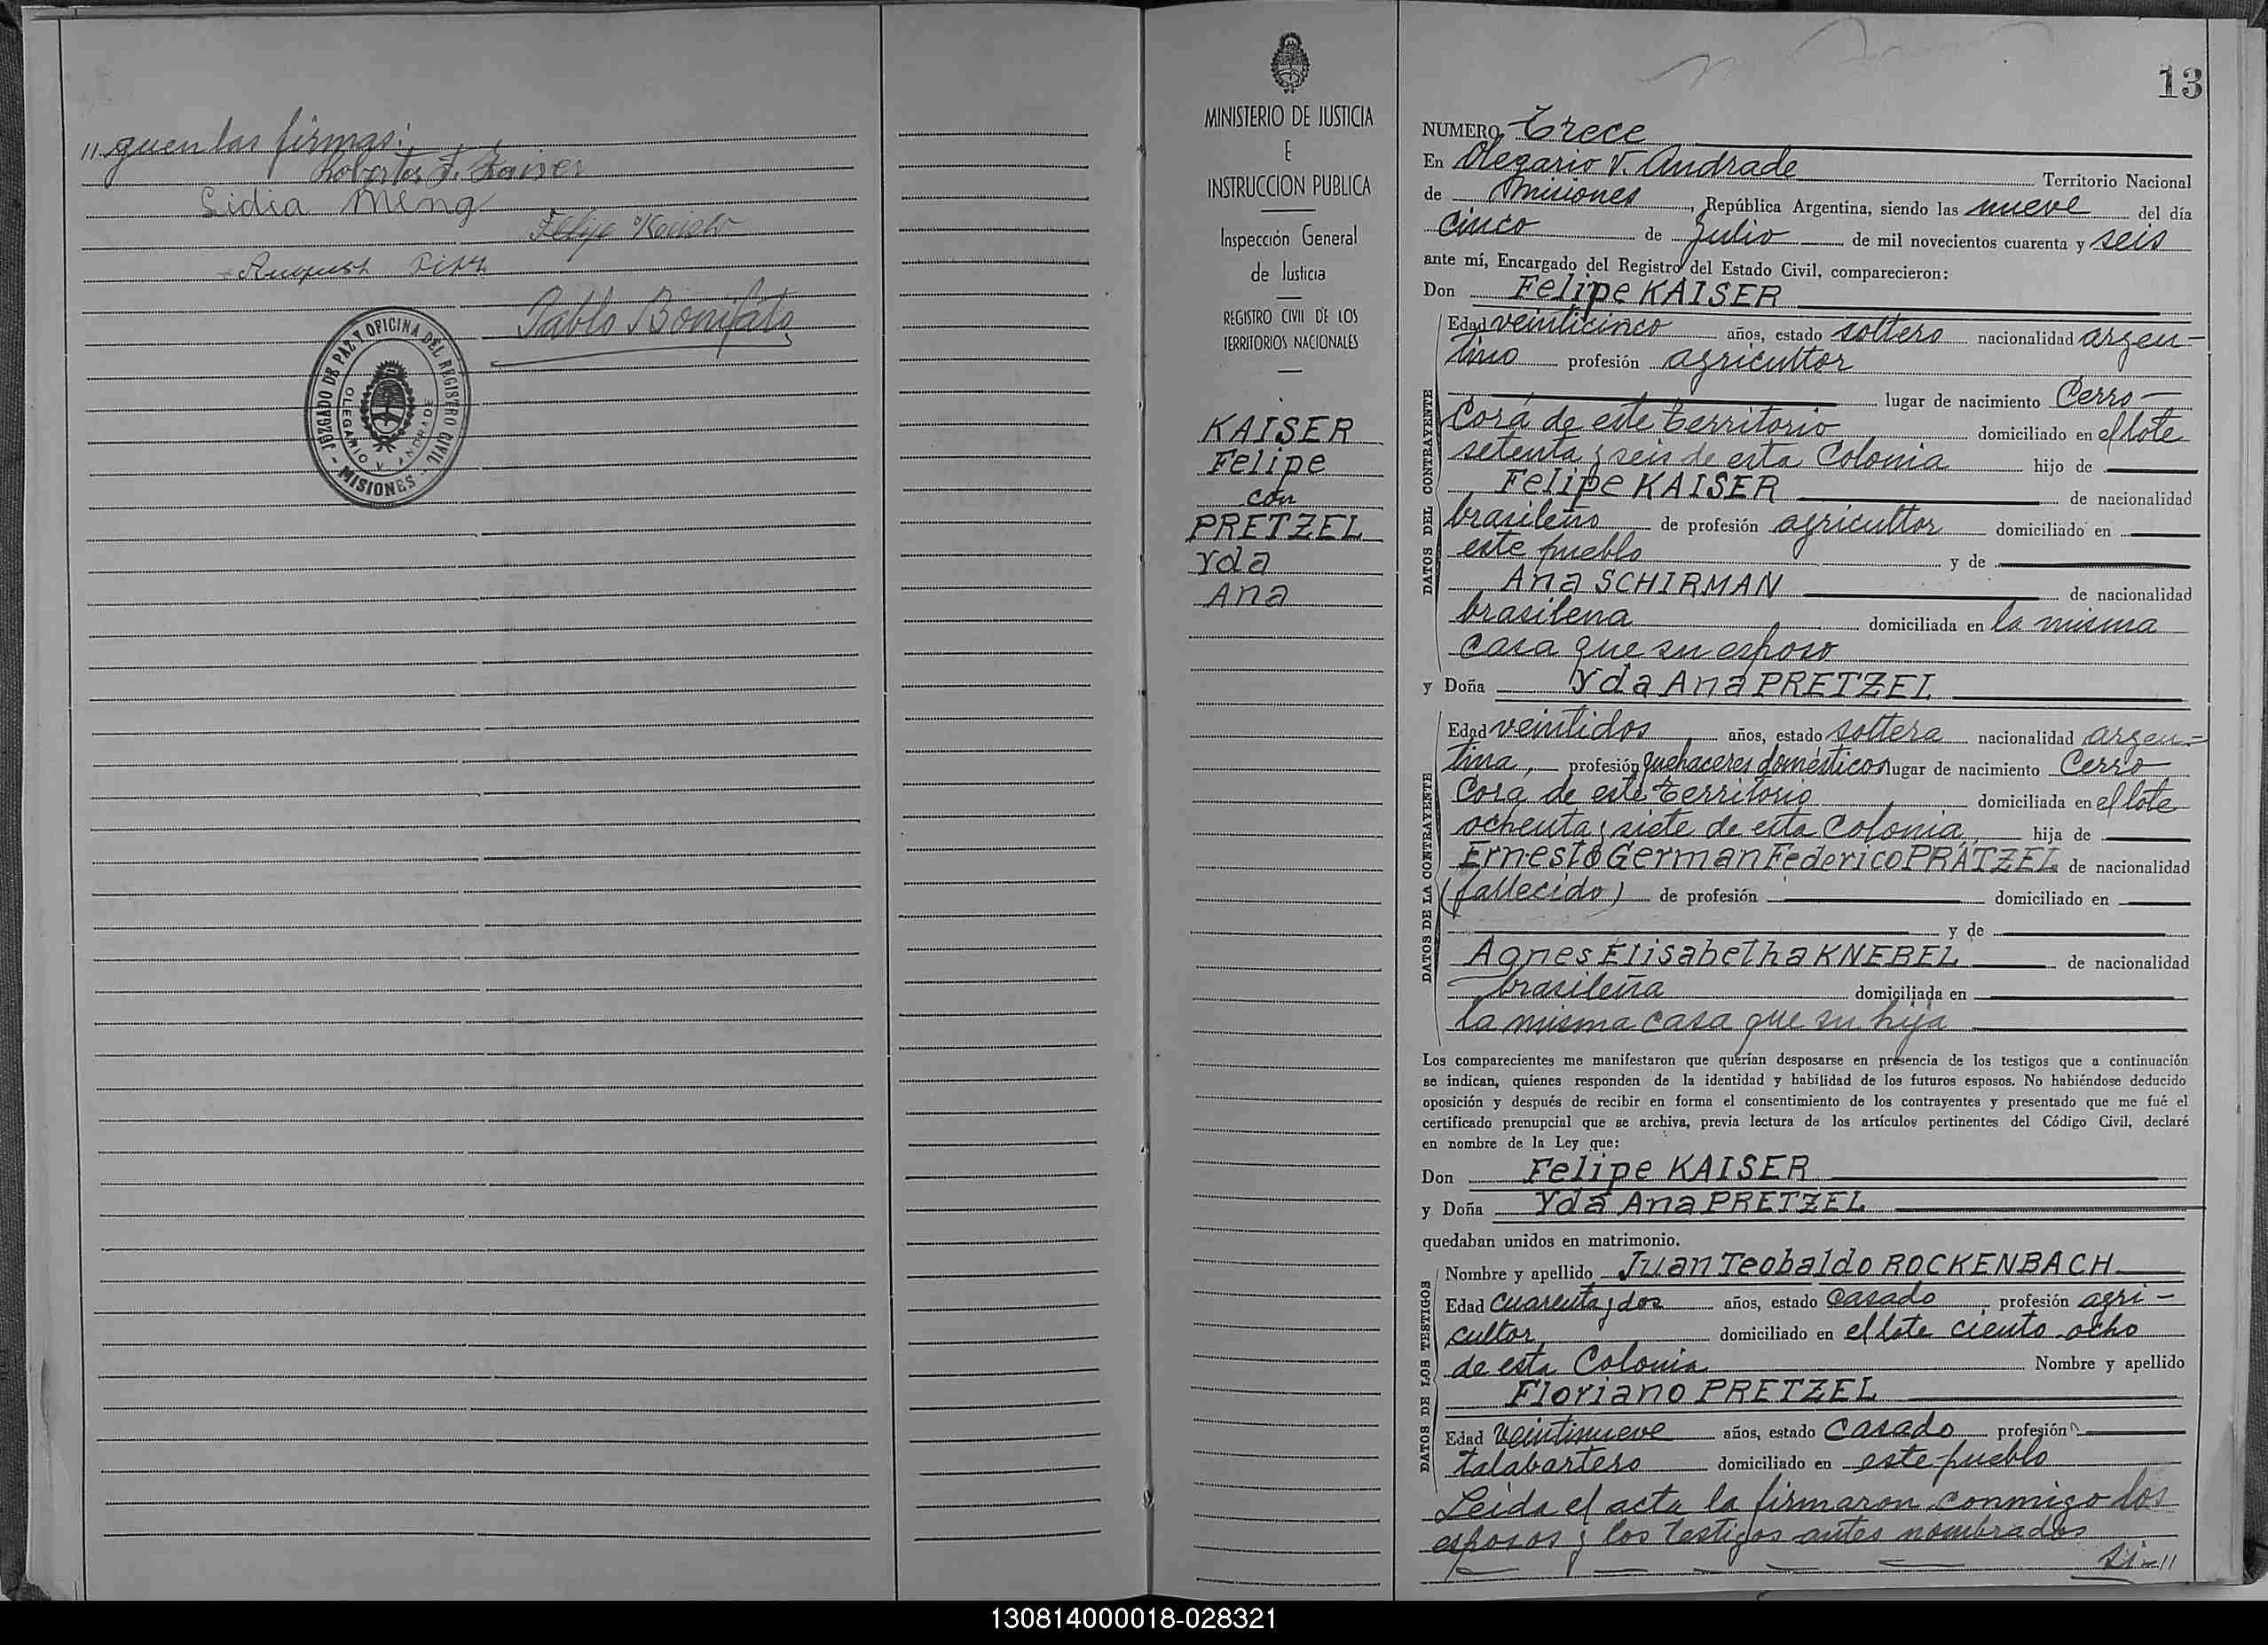 "guen las firmas:
Roberto F. Kaiser
Lidia Meng
Felipe Kaiser
August
Pablo Bonifato
JUZGADO DE PAZ Y OFICINA DEL REGISTRO CIVIL
OLEGARIO V. ANDRADE
- MISIONES -
MINISTERIO DE JUSTICIA
E
INSTRUCCION PUBLICA
Inspección General
de Justicia
REGISTRO CIVIL DE LOS
TERRITORIOS NACIONALES
KAISER
Felipe
con
PRETZEL
Yda
Ana
13
NUMERO Trece
En Olegario V. Andrade Territorio Nacional
de Misiones, República Argentina, siendo las nueve del día
cinco de Julio de mil novecientos cuarenta y seis
ante mí, Encargado del Registro del Estado Civil, comparecieron:
Don Felipe KAISER
DATOS DEL CONTRAYENTE
Edad veinticinco años, estado soltero nacionalidad argen-
tino profesión agricultor
lugar de nacimiento Cerro-
Corá de este territorio domiciliado en el lote
setenta y seis de esta Colonia hijo de
Felipe KAISER de nacionalidad
brasileño de profesión agricultor domiciliado en
este pueblo y de
Ana SCHIRMAN de nacionalidad
brasilena domiciliada en la misma
casa que su esposo
y Doña Yda Ana PRETZEL
DATOS DE LA CONTRAYENTE
Edad veintidos años, estado soltera nacionalidad argen-
tina, profesión quehaceres domésticos lugar de nacimiento Cerro
Corá de este territorio domiciliada en el lote
ochenta y siete de esta Colonia, hija de
Ernesto German Federico PRÄTZEL de nacionalidad
(fallecido) de profesión domiciliado en
y de
Agnes Elisabetha KNEBEL de nacionalidad
brasileña domiciliada en
la misma casa que su hija
Los comparecientes me manifestaron que querían desposarse en presencia de los testigos que a continuación
se indican, quienes responden de la identidad y habilidad de los futuros esposos. No habiéndose deducido
oposición y después de recibir en forma el consentimiento de los contrayentes y presentado que me fué el
certificado prenupcial que se archiva, previa lectura de los artículos pertinentes del Código Civil, declaré
en nombre de la Ley que:
Don Felipe KAISER
y Doña Yda Ana PRETZEL
quedaban unidos en matrimonio.
DATOS DE LOS TESTIGOS
Nombre y apellido Juan Teobaldo ROCKENBACH
Edad cuarenta y dos años, estado casado, profesión agri-
cultor domiciliado en el lote ciento ocho
de esta Colonia Nombre y apellido
Floriano PRETZEL
Edad veintinueve años, estado casado profesión
talabartero domiciliado en este pueblo
Leída el acta la firmaron conmigo los
esposos y los testigos antes nombrados
Si-"
130814000018-028321